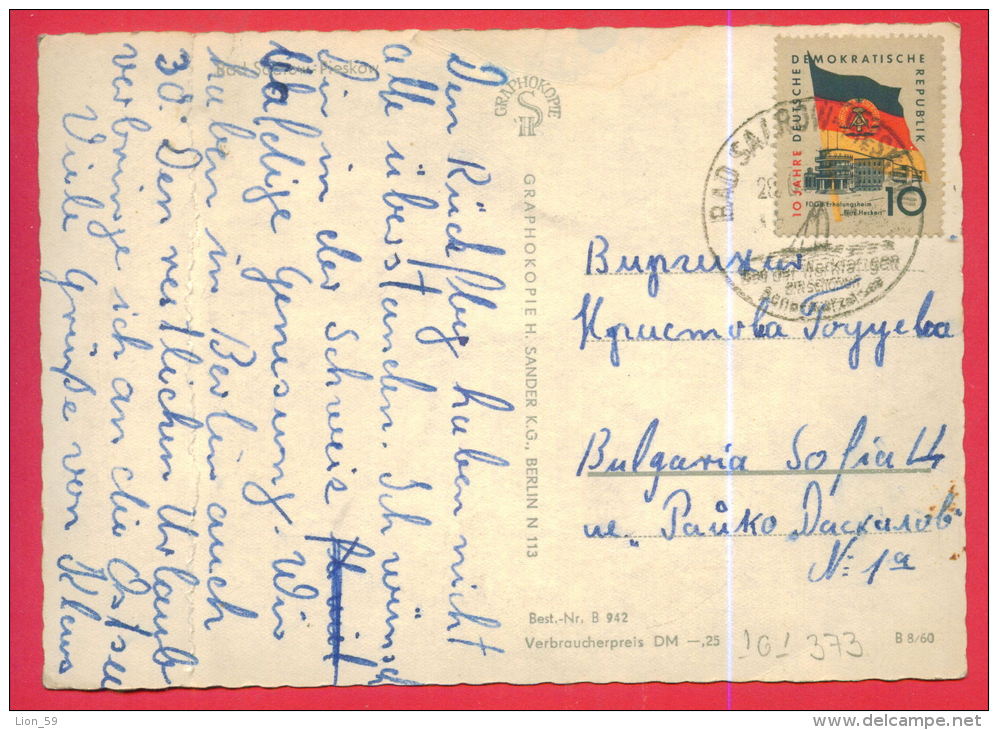 Bad Saarow-Pieskow
Den Rückflug haben nicht
alle überstanden. Ich wünsch
in der Schweis
baldige Genesung. Wir
haben in Berlin auch
30. Den restlichen Urlaub
verbringe ich an die Ostsee
Viele Grüße von Klaus
GRAPHOKOPIE
GRAPHOKOPIE H. SANDER K.G., BERLIN N 113
10 JAHRE DEUTSCHE DEMOKRATISCHE REPUBLIK
FDGB Erholungsheim
"Fritz Heckert"
10
BAD SAAROW-PIESKOW
Bad der Werktätigen
am Scharmützelsee
Виргиния
Христова Годуева
Bulgaria Sofia 14
ул. „Райко Даскалов"
№ 1а
Best.-Nr. B 942
Verbraucherpreis DM —,25
IGI 373
B 8/60
Lion_59
www.delcampe.net